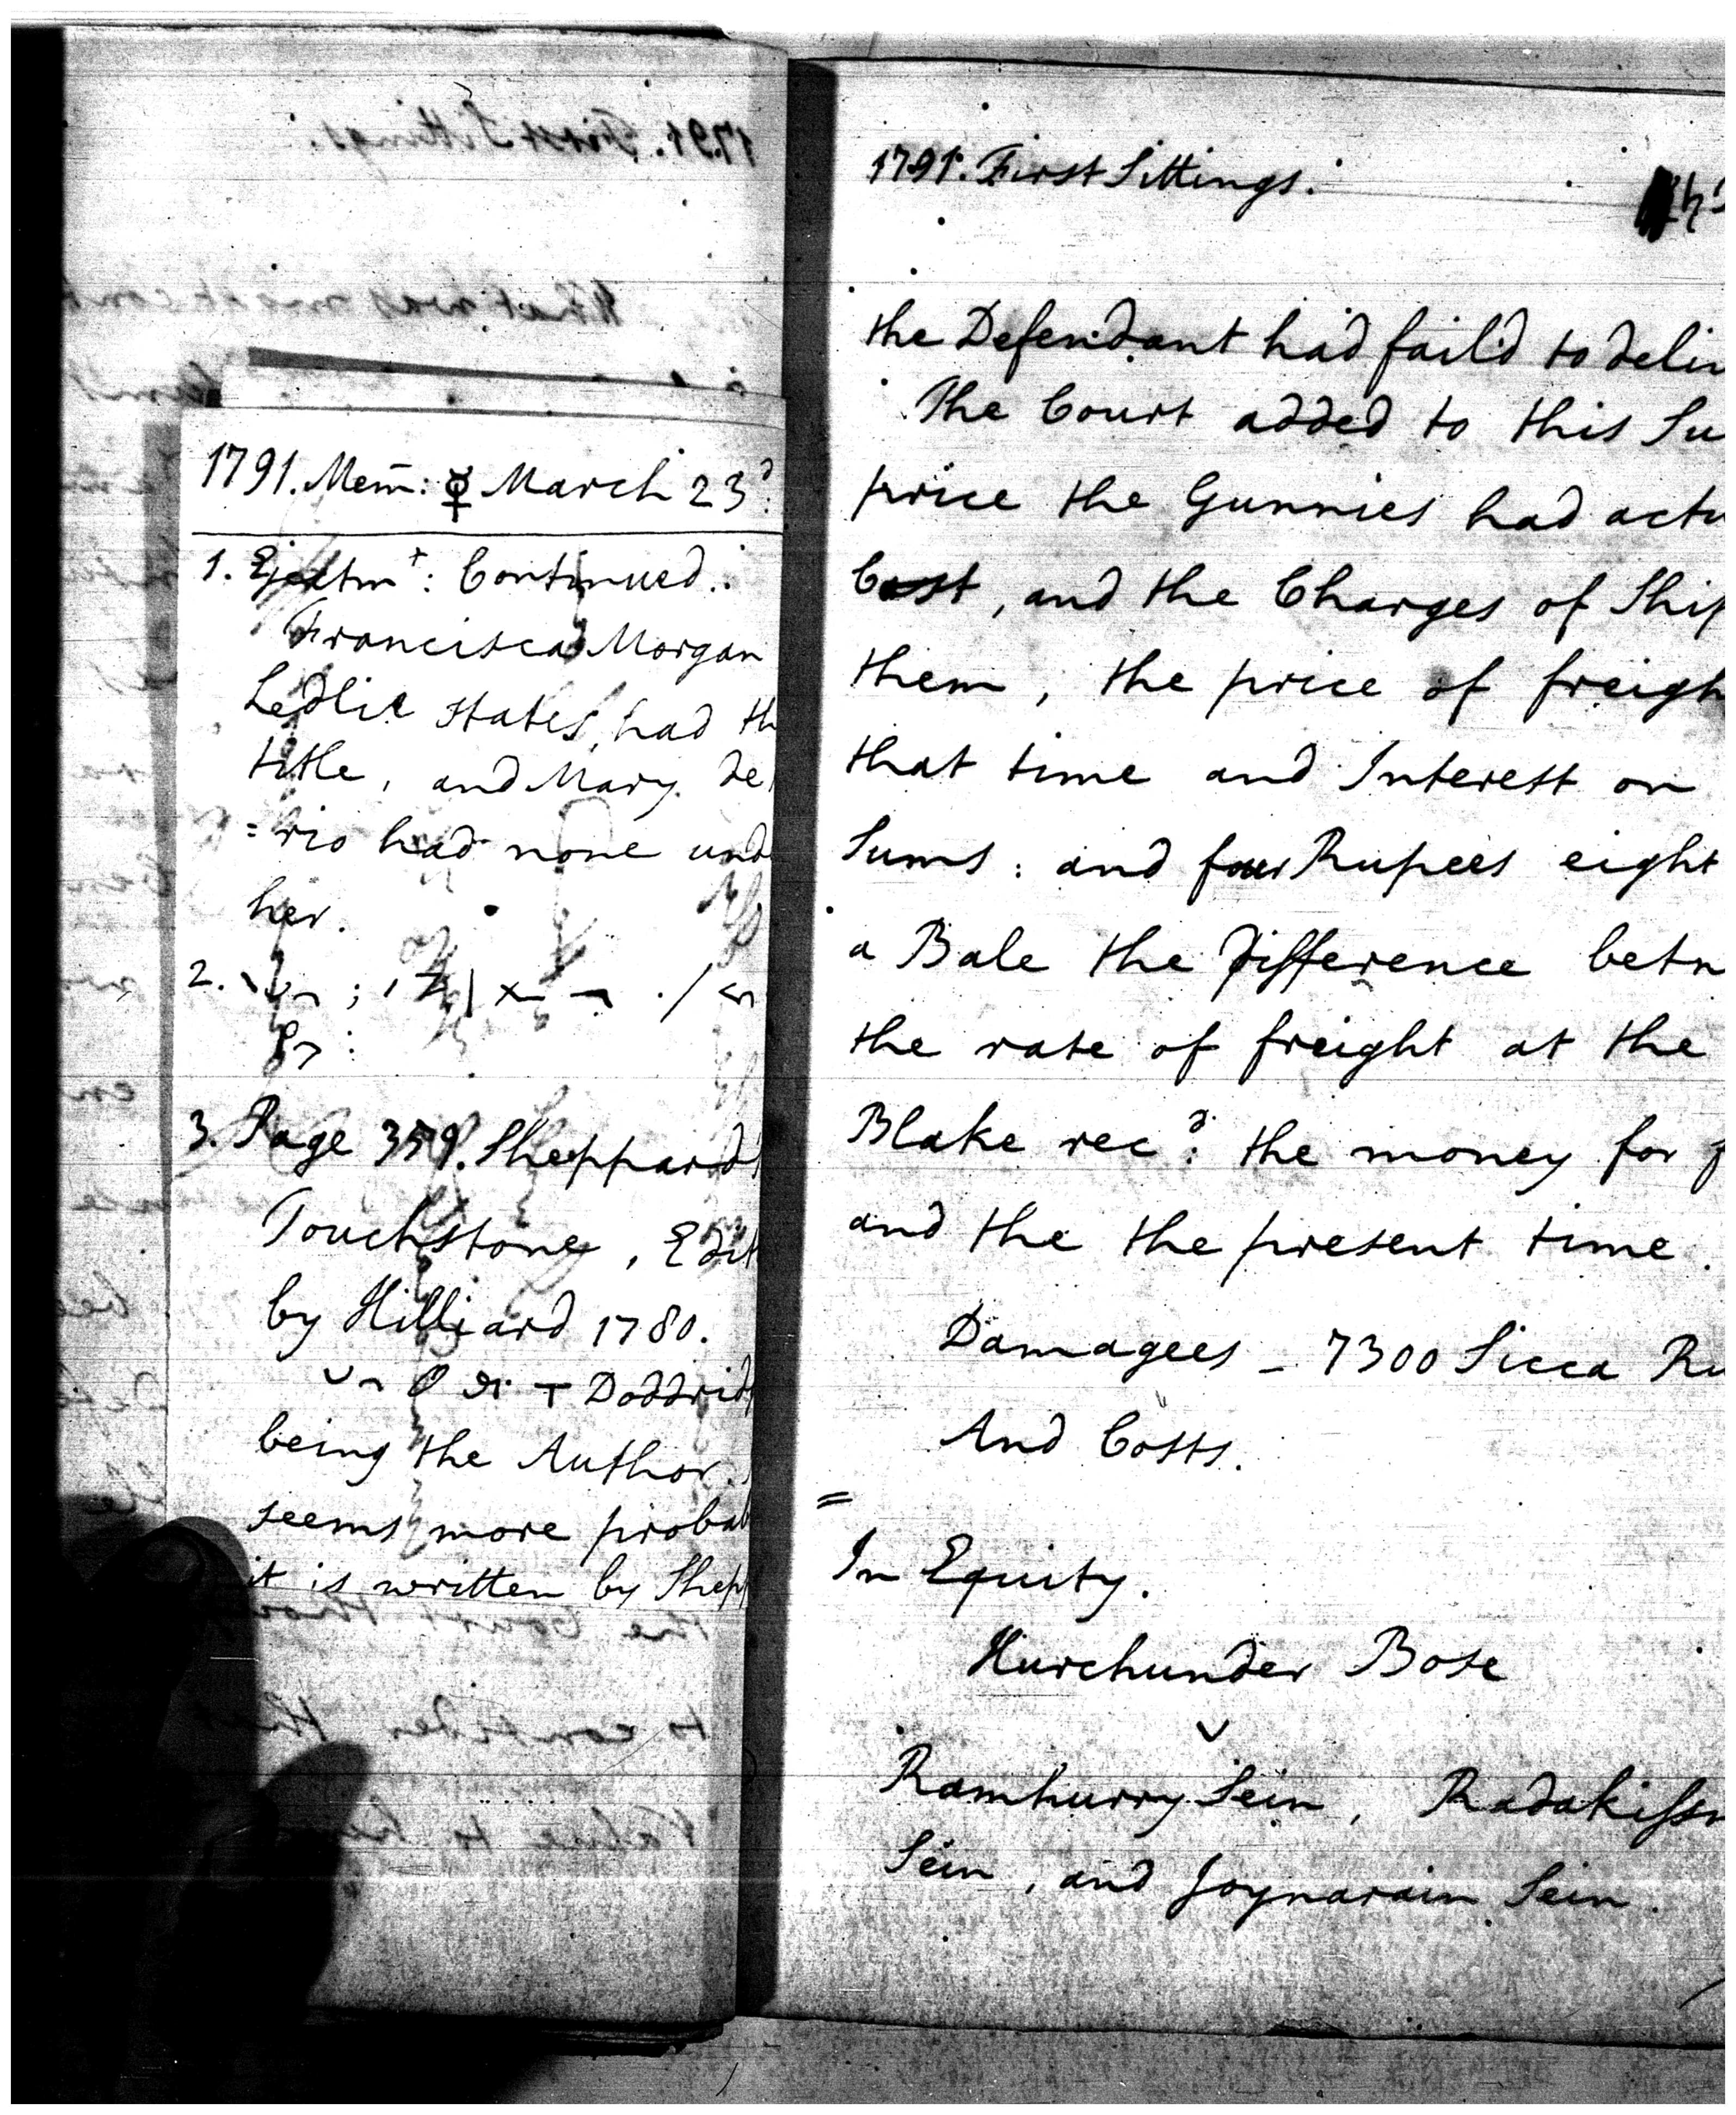 1791. Mem̄: ☿ March 23d:
1. Ejectmt: Continued.
Francisca Morgan
Ledlie states, had th
title, and Mary de
=rio had none und
her.
2.
3. Page 359. Sheppard
Touchstone, Edit
by Hilliard 1780.
Doddrid
being the Author.
seems more probab
it is written by Shep
1791. First Sittings.
the Defendant had faild to deliv
The Court added to this Su
price the Gunnies had actu
Cost, and the Charges of Ship
them, the price of freigh
that time and Interest on
Sums: and four Rupees eight
a Bale the Difference betw
the rate of freight at the
Blake recd: the money for f
and the the present time.
Damagees - 7300 Sicca Ru
And Costs.
=
In Equity.
Hurchunder Bose
v
Ramhurry Sein, Radakissn
Sein, and Joynarain Sein.